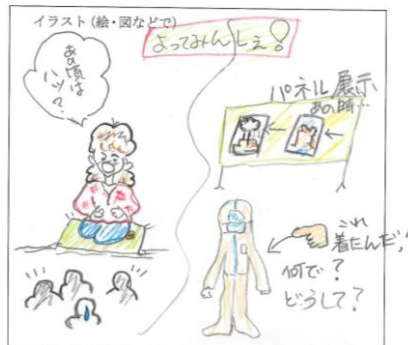 イラスト(絵・図などで)
よってみんしぇ!
あの頃は
ハッ?
パネル展示
あの時…
これ
着たんだ!
何で?
どうして?